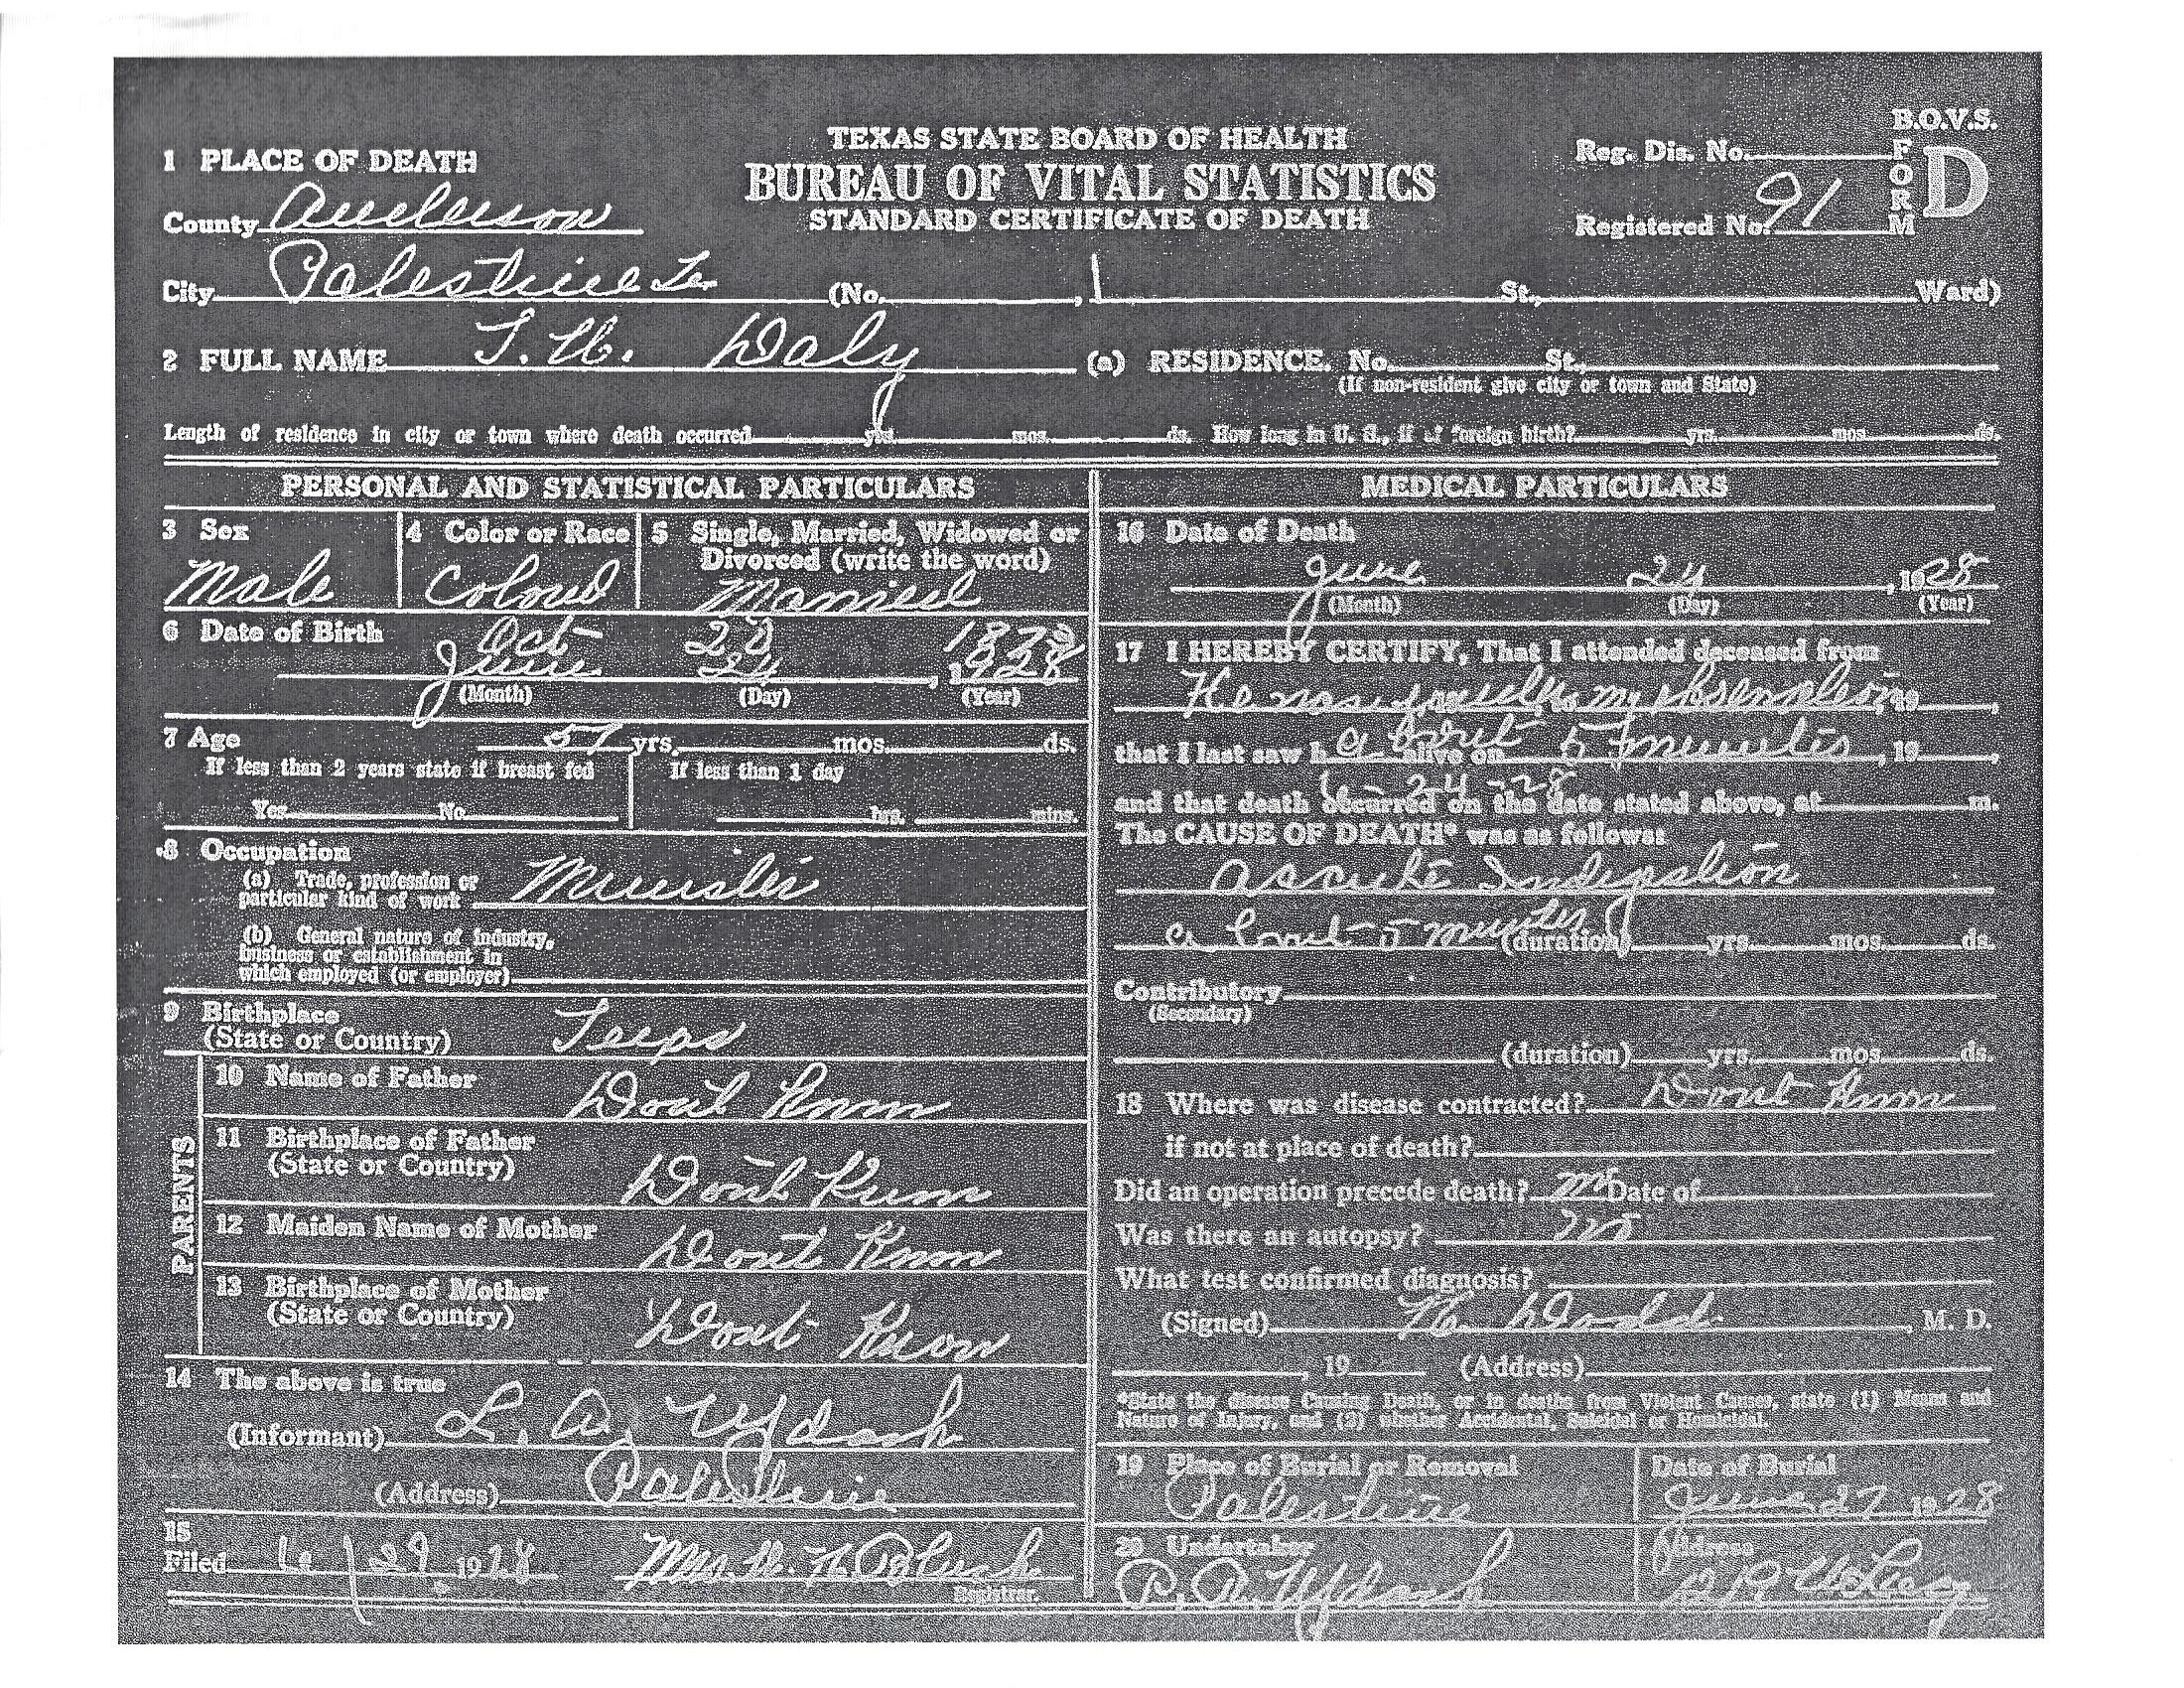 B.O.V.S.
FORM D
TEXAS STATE BOARD OF HEALTH
BUREAU OF VITAL STATISTICS
STANDARD CERTIFICATE OF DEATH
Reg. Dis. No.
Registered No. 91
1 PLACE OF DEATH
County Anderson
City Palestine (No. , St., Ward)
2 FULL NAME Daly (a) RESIDENCE. No. St.,
(If non-resident give city or town and State)
Length of residence in city or town where death occurred yrs. mos. ds. How long in U. S., if of foreign birth? yrs. mos. ds.
PERSONAL AND STATISTICAL PARTICULARS
3 Sex
Male
4 Color or Race
Colored
5 Single, Married, Widowed or
Divorced (write the word)
Married
6 Date of Birth
Oct 28
June 24 , 1928
(Month) (Day) (Year)
7 Age 57 yrs. mos. ds.
If less than 2 years state if breast fed
Yes No
If less than 1 day
hrs. mins.
8 Occupation
(a) Trade, profession or
particular kind of work Minister
(b) General nature of industry,
business or establishment in
which employed (or employer)
9 Birthplace
(State or Country) Texas
PARENTS
10 Name of Father Dont Know
11 Birthplace of Father
(State or Country) Dont Know
12 Maiden Name of Mother Dont Know
13 Birthplace of Mother
(State or Country) Dont Know
14 The above is true
(Informant)
(Address) Palestine
15
Filed 6/29 1928
Registrar.
MEDICAL PARTICULARS
16 Date of Death
June 24 , 1928
(Month) (Day) (Year)
17 I HEREBY CERTIFY, That I attended deceased from
He was , 19 ,
that I last saw h about alive on 5 minutes , 19 ,
6-24-28
and that death occurred on the date stated above, at m.
The CAUSE OF DEATH* was as follows:
Indigestion
about 5 minutes (duration) yrs. mos. ds.
Contributory
(Secondary)
(duration) yrs. mos. ds.
18 Where was disease contracted? Dont Know
if not at place of death?
Did an operation precede death? no Date of
Was there an autopsy? no
What test confirmed diagnosis?
(Signed) Dodd , M. D.
, 19 (Address)
*State the disease Causing Death, or in deaths from Violent Causes, state (1) Means and
Nature of Injury, and (2) whether Accidental, Suicidal or Homicidal.
19 Place of Burial or Removal
Palestine
Date of Burial
June 27 1928
20 Undertaker
Address